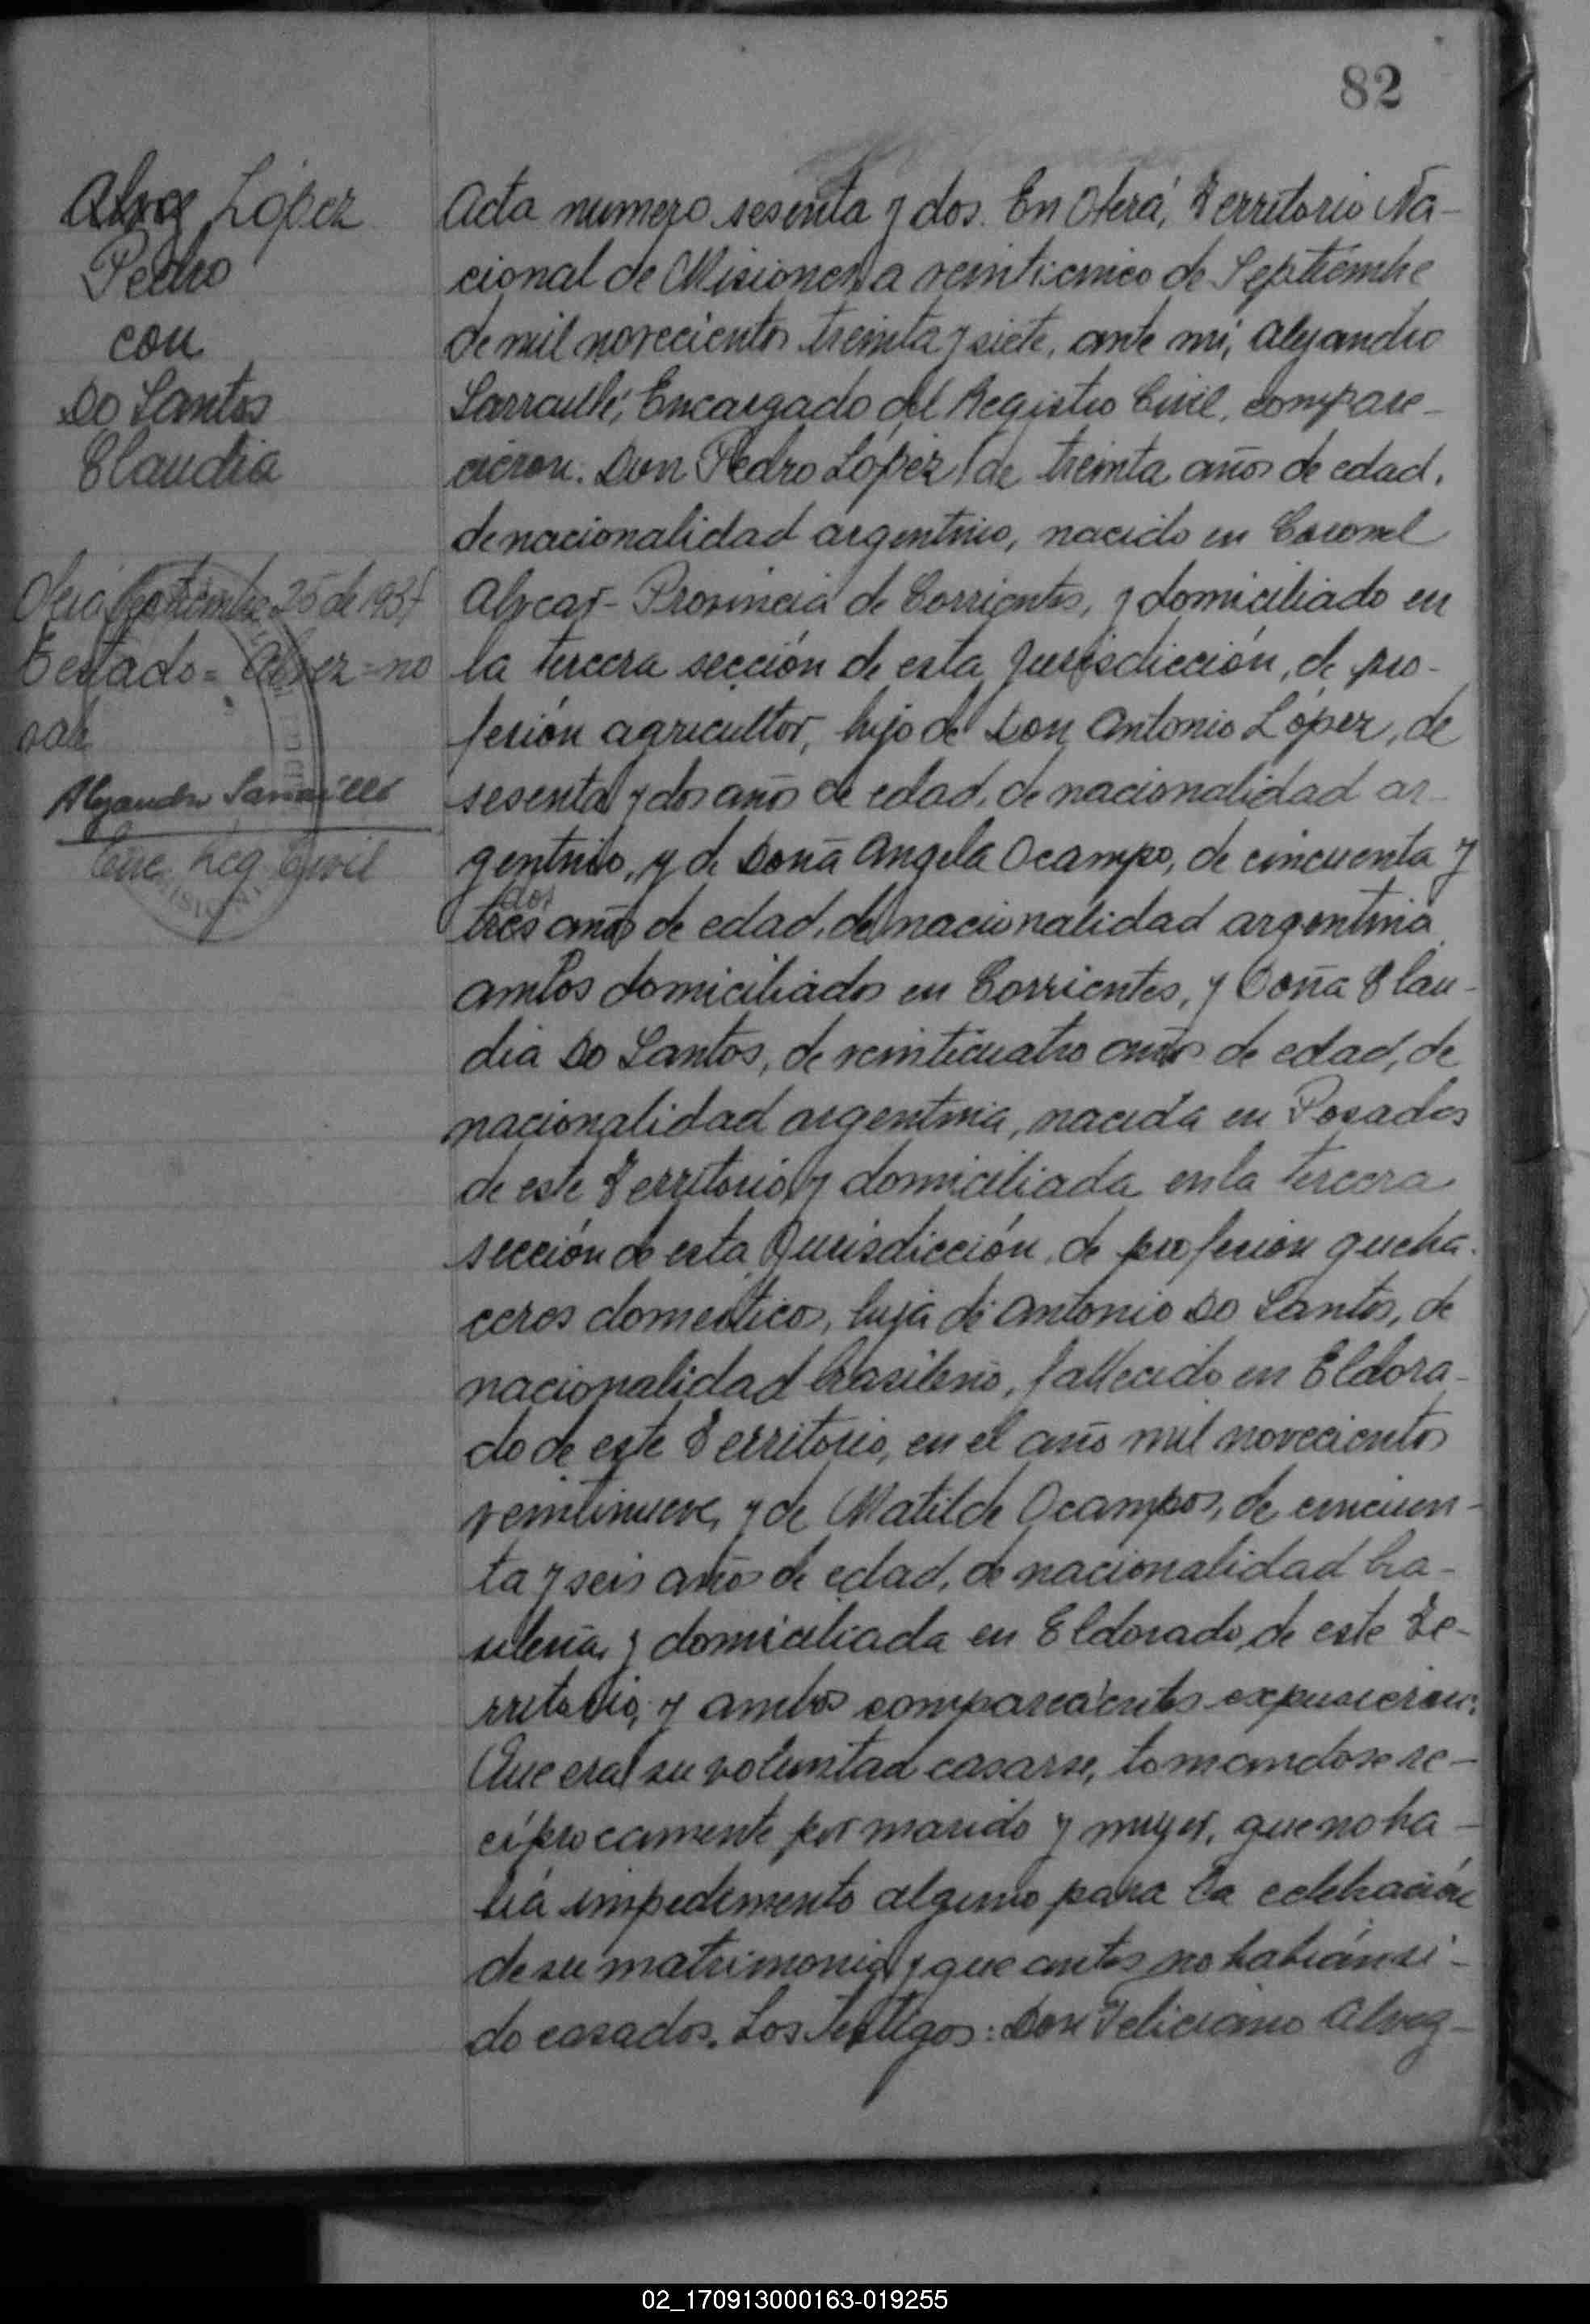 82
López
Pedro
con
Do Santos
Claudia
Oberá Septiembre 25 de 1937
Testado = Alvez = no
vale
Alejandro Sarraulle
Enc. Reg. Civil
Acta numero sesenta y dos. En Oberá, Territorio Na-
cional de Misiones, a veinticinco de Septiembre
de mil novecientos treinta y siete, ante mi, Alejandro
Encargado del Registro Civil, compare-
cieron. Don Pedro López, de treinta años de edad,
de nacionalidad argentino, nacido en Coronel
Alvear - Provincia de Corrientes, y domiciliado en
la tercera sección de esta Jurisdicción, de pro-
fesión agricultor, hijo de Don Antonio López, de
sesenta y dos años de edad, de nacionalidad ar-
gentino, y de Doña Angela Ocampo, de cincuenta y
dos
tres años de edad, de nacionalidad argentina
ambos domiciliados en Corrientes, y Doña Clau-
dia Do Santos, de veinticuatro años de edad, de
nacionalidad argentina, nacida en Posadas
de este Territorio, y domiciliada en la tercera
sección de esta Jurisdicción, de profesion queha-
ceres domesticos, hija de Antonio Do Santos, de
nacionalidad brasileno, fallecido en Eldora-
do de este Territorio, en el año mil novecientos
veintinueve, y de Matilde Ocampos, de cincuen-
ta y seis años de edad, de nacionalidad bra-
sileña, y domiciliada en Eldorado, de este Te-
rritorio, y ambos comparecientes expusieron:
Que era su voluntad casarse, tomandose re-
cíprocamente por marido y mujer, que no ha-
bía impedimento alguno para la celebración
de su matrimonio, y que antes no habían si-
do casados. Los Testigos: Don Feliciano